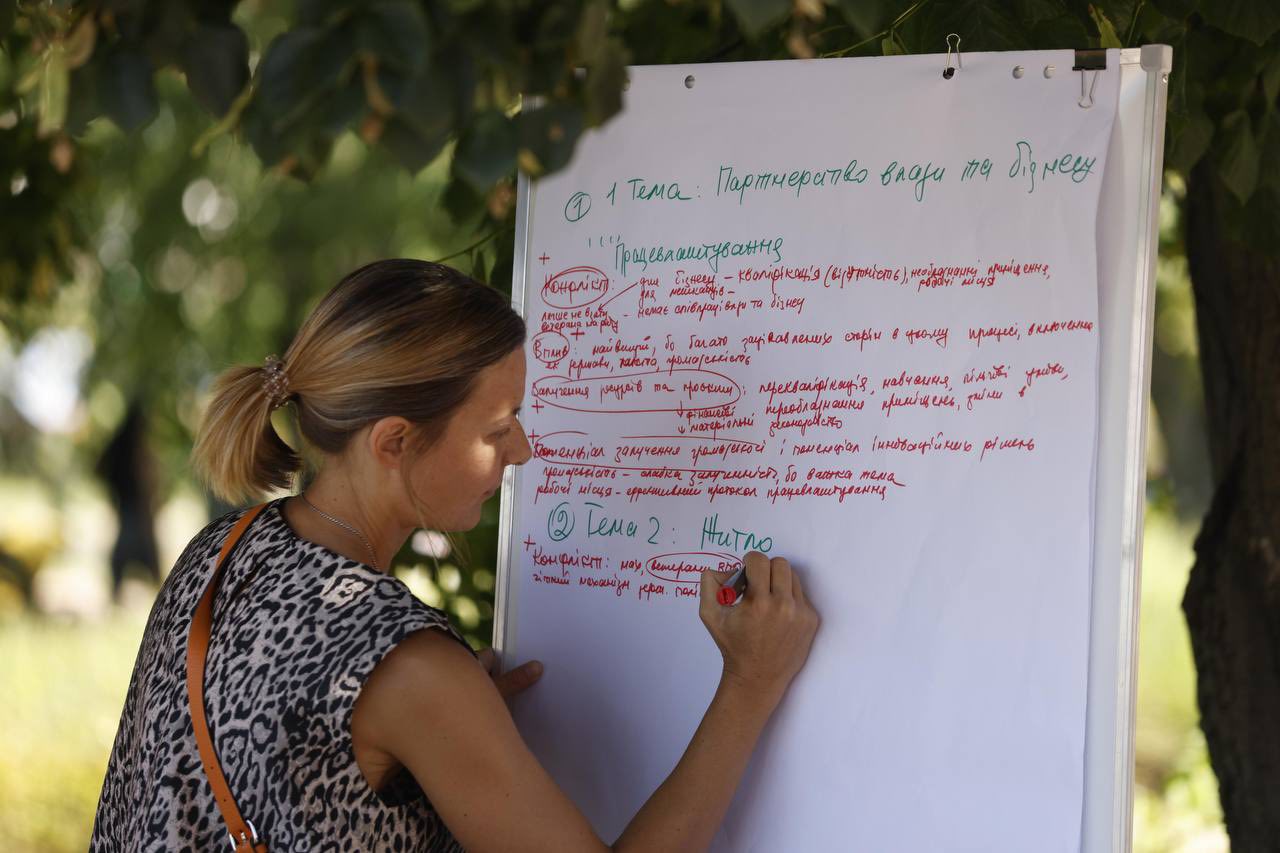 ① 1 Тема: Партнерство влади та бізнесу
Працевлаштування
Конфлікт: для бізнесу – кваліфікація (відсутність), необладнані приміщення,
робочі місця
для мешканців –
лише не взяти – немає співпраці влади та бізнесу
ветерана на роботу
Вплив: найвищий, бо багато зацікавлених сторін в цьому процесі, включення
держави, громадськість
Залучення ресурсів та просним: перекваліфікація, навчання, пільгові умови,
фінансові переобладнання приміщень, зміни в
матеріальні законодавство
Потенціал залучення громадськості і потенціал інноваційних рішень
громадськість – слабка залученність, бо важка тема
робочі місця – ефективний протокол працевлаштування
② Тема 2: Житло
Конфлікт: ветерани ВПО
механізм держ.